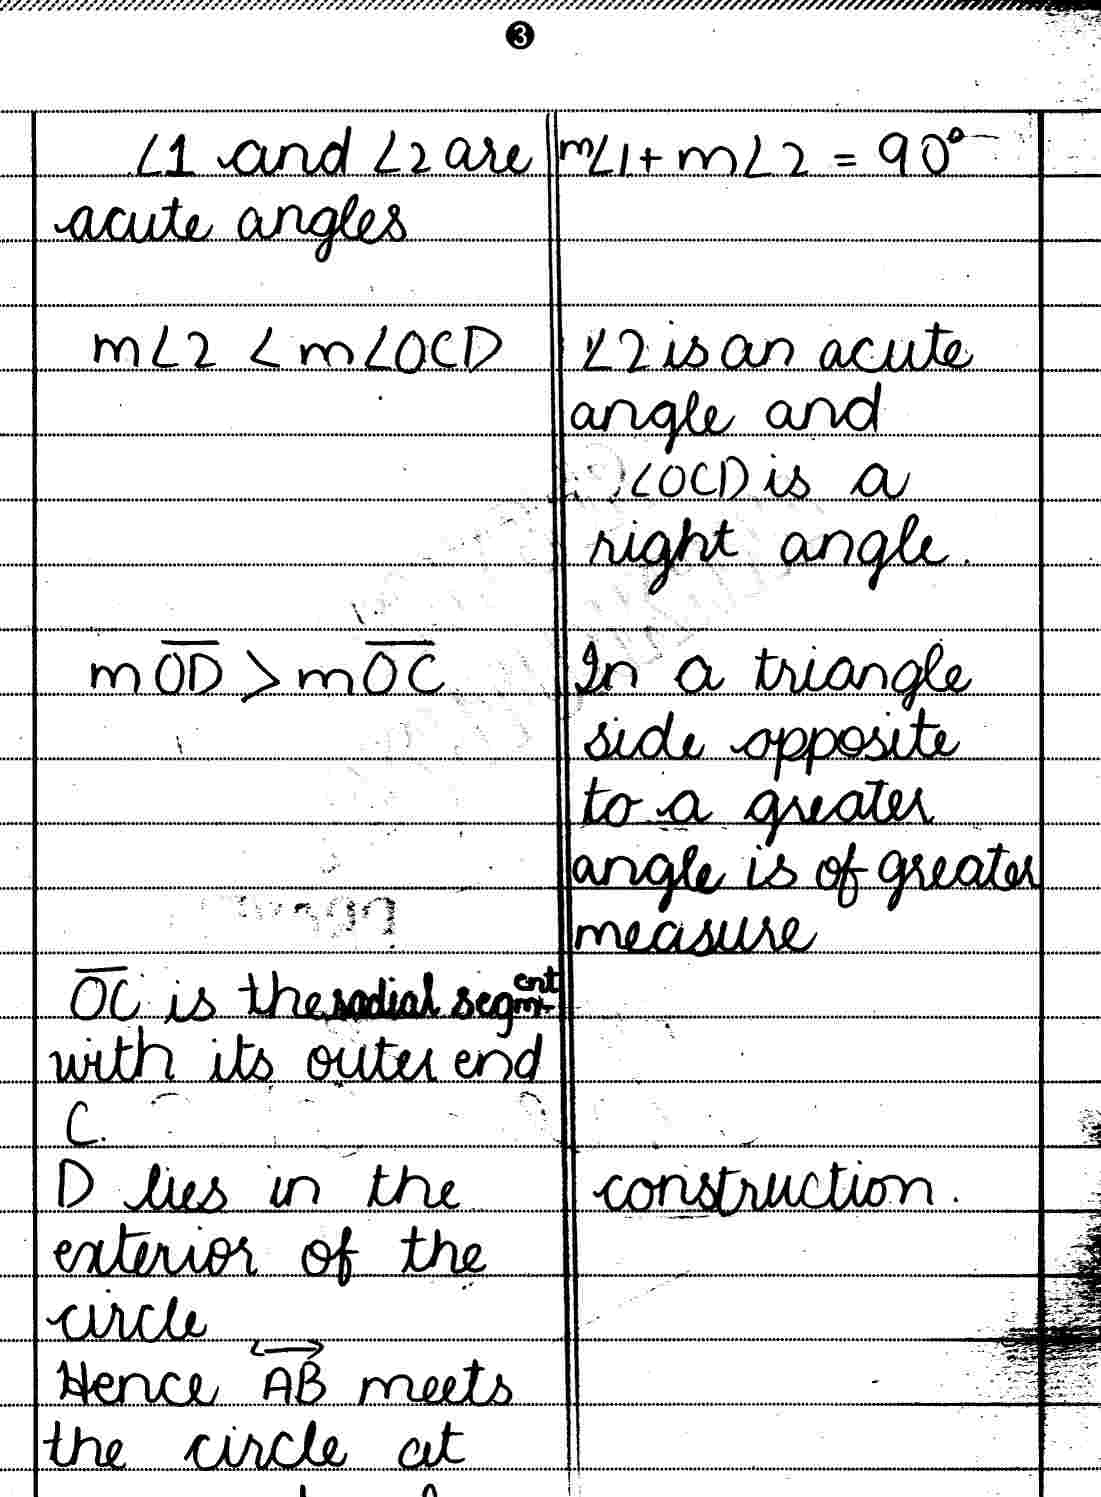 3
∠1 and ∠2 are
acute angles
m∠1 + m∠2 = 90°
m∠2 < m∠OCD
∠2 is an acute
angle and
∠OCD is a
right angle.
mO̅D̅ > mO̅C̅
In a triangle
side opposite
to a greater
angle is of greater
measure
O̅C̅ is the radial segment
with its outer end
C.
D lies in the
exterior of the
circle
construction.
Hence A͐B͐ meets
the circle at